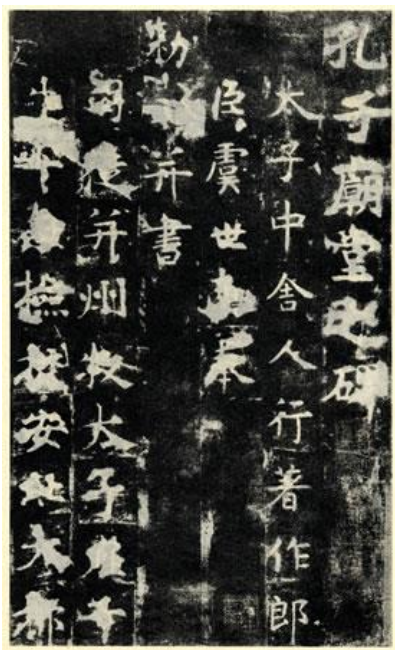 孔子廟堂之碑
太子中舍人行著作郎
臣虞世南奉
勑并書
司徒并州牧太子左千
牛兼檢校安北大都